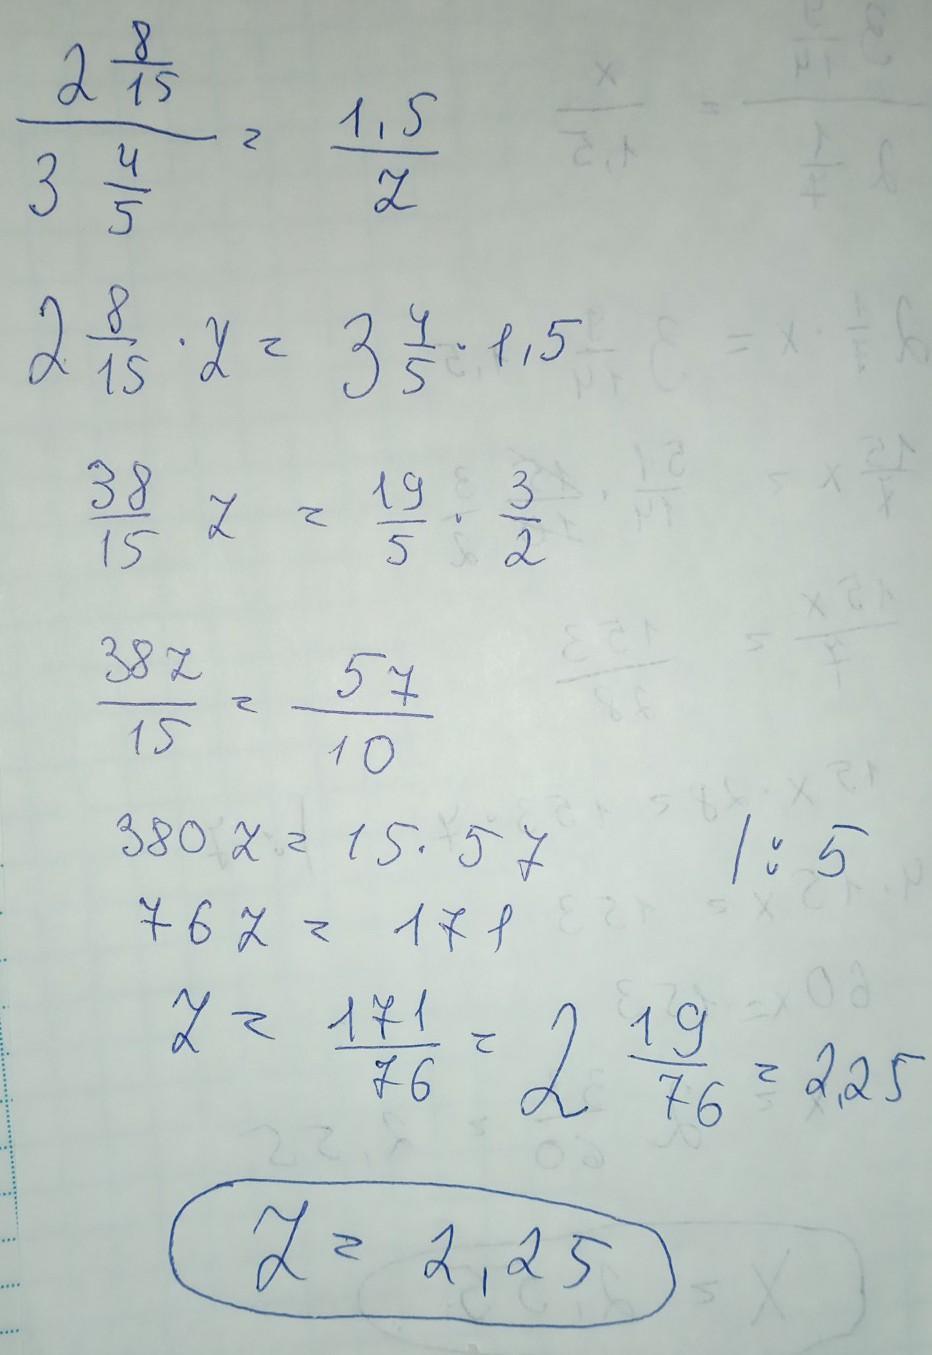 2 8/15 / 3 4/5 = 1,5 / z
2 8/15 · z = 3 4/5 · 1,5
38/15 z = 19/5 · 3/2
38z/15 = 57/10
380 z = 15 · 57 |: 5
76 z = 171
z = 171/76 = 2 19/76 = 2,25
z = 2,25